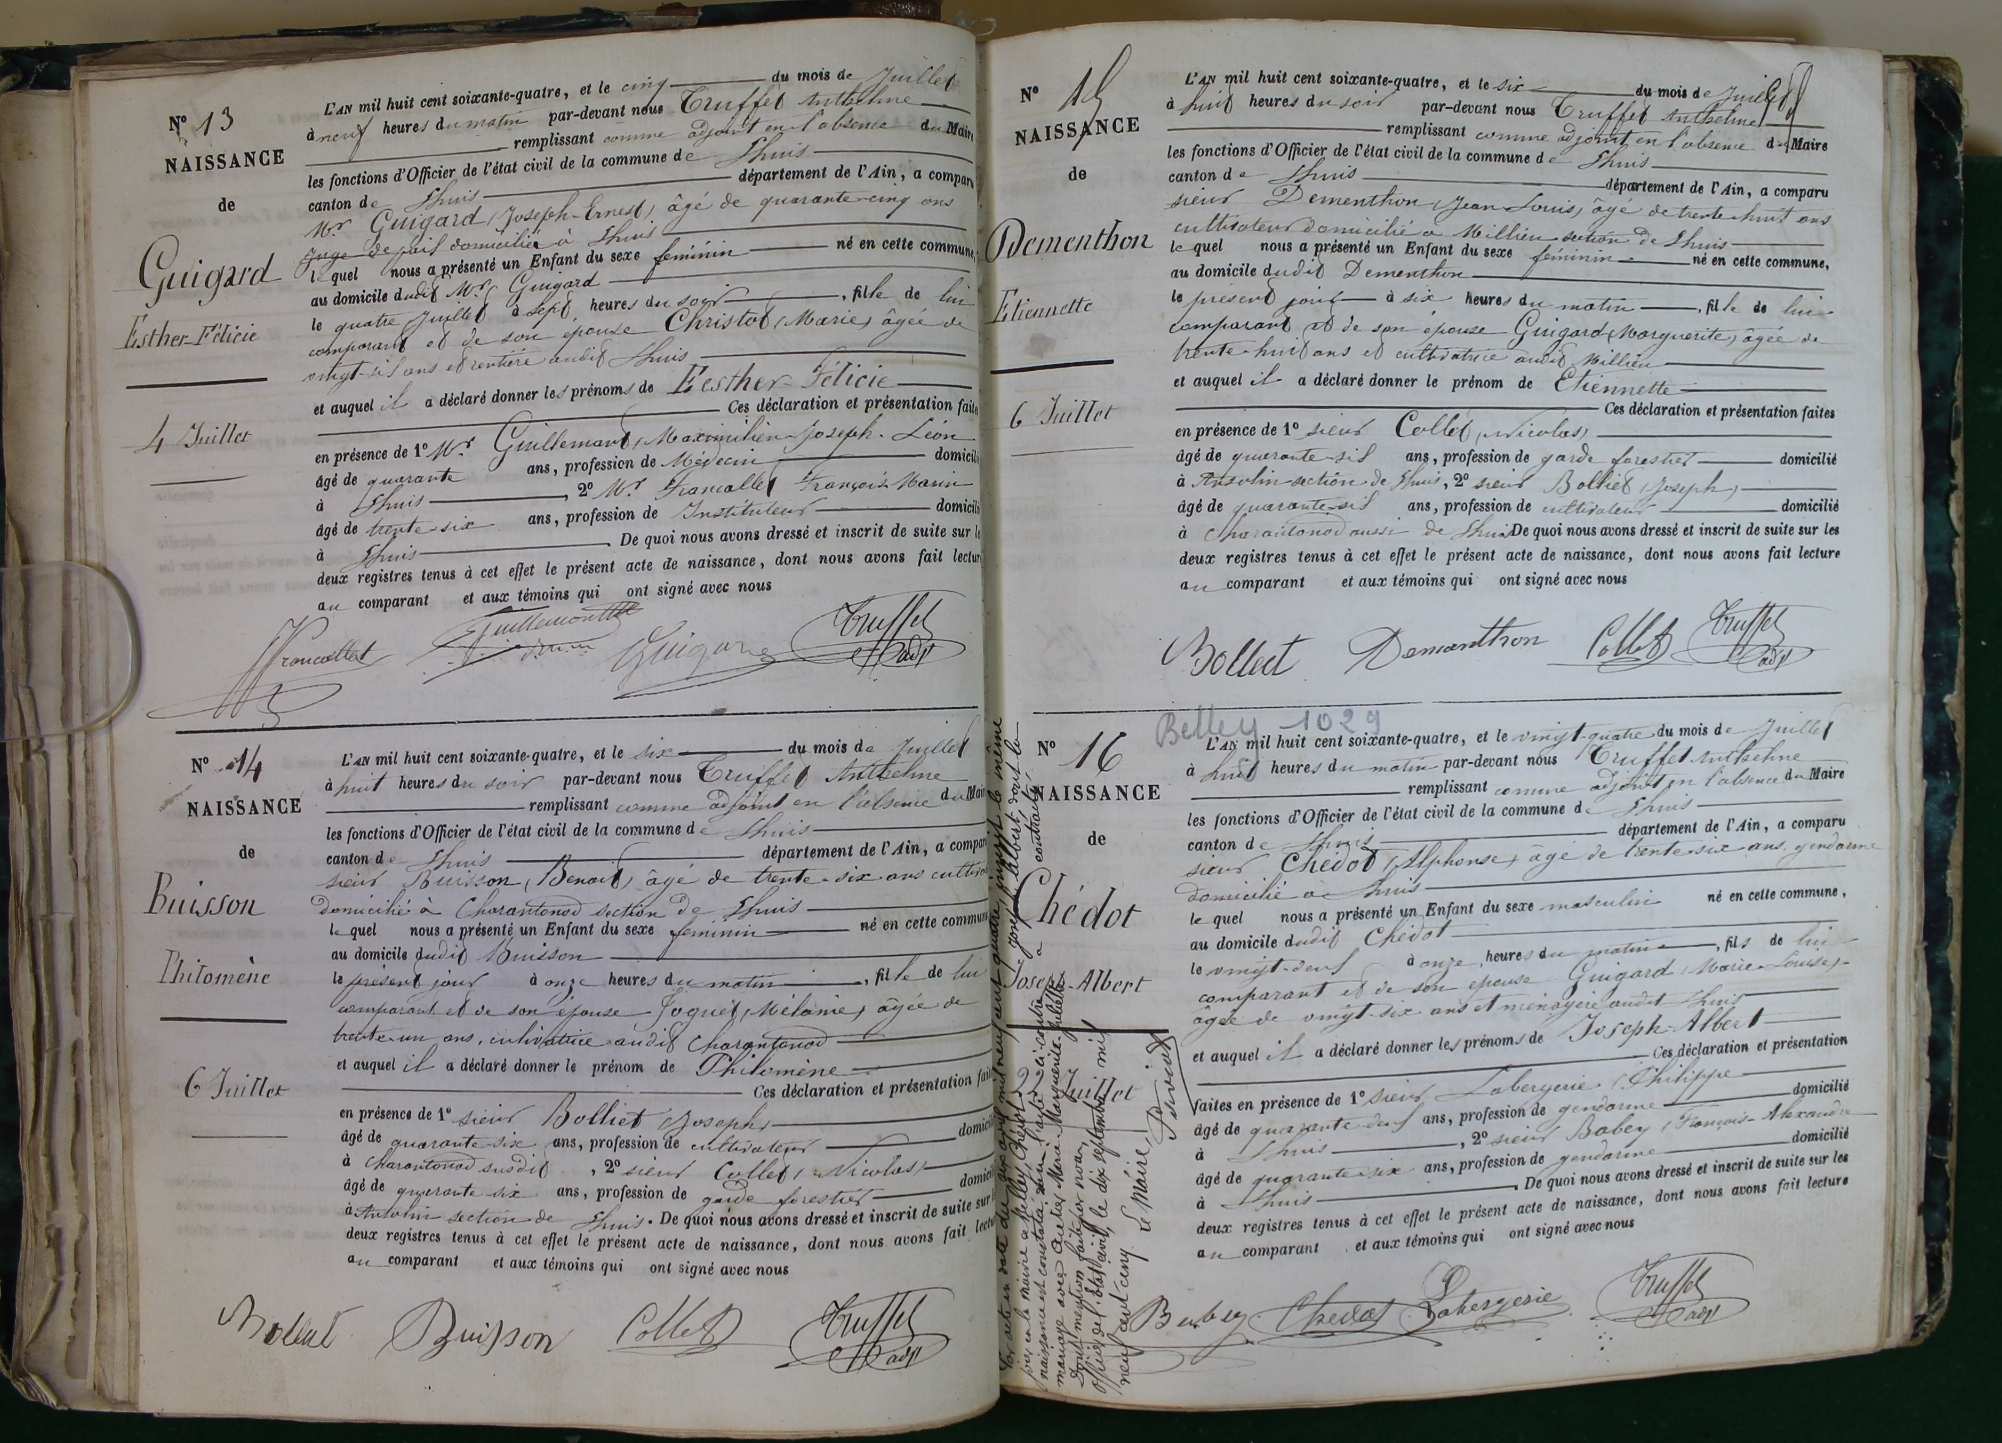 Nº 13
NAISSANCE
de
Guigard
Esther-Félicie
4 Juillet
L'AN mil huit cent soixante-quatre, et le cinq du mois de Juillet
à neuf heures du matin par-devant nous Truffet Anthelme
remplissant comme adjoint en l'absence du Maire
les fonctions d'Officier de l'état civil de la commune de Lhuis
canton de Lhuis département de l'Ain, a comparu
Mr Guigard (Joseph-Ernest) âgé de quarante-cinq ans
juge de paix domicilié à Lhuis
lequel nous a présenté un Enfant du sexe féminin né en cette commune,
au domicile dudit Mr Guigard
le quatre Juillet à sept heures du soir, fille de lui
comparant et de son épouse Christot (Marie) âgée de
vingt-six ans et rentière audit Lhuis
et auquel il a déclaré donner les prénoms de Eesther-Félicie
Ces déclaration et présentation faites
en présence de 1º Mr Guillemaut, Maximilien-Joseph-Léon
âgé de quarante ans, profession de Médecin domicilié
à Lhuis, 2º Mr Francallet François Marin
âgé de trente-six ans, profession de Instituteur domicilié
à Lhuis. De quoi nous avons dressé et inscrit de suite sur le
deux registres tenus à cet effet le présent acte de naissance, dont nous avons fait lecture
au comparant et aux témoins qui ont signé avec nous
Francallet Guigard Truffet
adjt
Nº 14
NAISSANCE
de
Buisson
Philomène
6 Juillet
L'AN mil huit cent soixante-quatre, et le six du mois de Juillet
à huit heures du soir par-devant nous Truffet Anthelme
remplissant comme adjoint en l'absence du Maire
les fonctions d'Officier de l'état civil de la commune de Lhuis
canton de Lhuis département de l'Ain, a comparu
sieur Buisson (Benoit) âgé de trente-six ans cultiva
domicilié à Charantonod section de Lhuis
lequel nous a présenté un Enfant du sexe féminin né en cette commune
au domicile dudit Buisson
le présent jour à onze heures du matin, fille de lui
comparant et de son épouse Joguet (Mélanie) âgée de
trente-un ans, cultivatrice audit Charantonod
et auquel il a déclaré donner le prénom de Philomène
Ces déclaration et présentation faites
en présence de 1º sieur Bolliet (Joseph)
âgé de quarante-six ans, profession de cultivateur domicilié
à Charantonod susdit, 2º sieur Collet, Nicolas
âgé de quarante-six ans, profession de garde forestier domicilié
à Ansolin section de Lhuis. De quoi nous avons dressé et inscrit de suite sur
deux registres tenus à cet effet le présent acte de naissance, dont nous avons fait lecture
au comparant et aux témoins qui ont signé avec nous
Bolliet Buisson Collet Truffet
adjt
Nº 15
NAISSANCE
de
Dementhon
Etiennette
6 Juillet
L'AN mil huit cent soixante-quatre, et le six du mois de Juillet
à huit heures du soir par-devant nous Truffet Anthelme
remplissant comme adjoint en l'absence du Maire
les fonctions d'Officier de l'état civil de la commune de Lhuis
canton de Lhuis département de l'Ain, a comparu
sieur Dementhon (Jean-Louis) âgé de trente-huit ans
cultivateur domicilié à Millieu section de Lhuis
lequel nous a présenté un Enfant du sexe féminin né en cette commune,
au domicile dudit Dementhon
le présent jour à six heures du matin, fille de lui
comparant et de son épouse Guigard (Marguerite) âgée de
trente-huit ans et cultivatrice audit Millieu
et auquel il a déclaré donner le prénom de Etiennette
Ces déclaration et présentation faites
en présence de 1º sieur Collet (Nicolas)
âgé de quarante-six ans, profession de garde forestier domicilié
à Ansolin section de Lhuis, 2º sieur Bolliet (Joseph)
âgé de quarante-six ans, profession de cultivateur domicilié
à Charantonod aussi de Lhuis De quoi nous avons dressé et inscrit de suite sur les
deux registres tenus à cet effet le présent acte de naissance, dont nous avons fait lecture
au comparant et aux témoins qui ont signé avec nous
Bolliet Demanthon Collet Truffet
adjt
Belley 1029
Nº 16
NAISSANCE
de
Chédot
Joseph-Albert
22 Juillet
L'AN mil huit cent soixante-quatre, et le vingt-quatre du mois de Juillet
à huit heures du matin par-devant nous Truffet Anthelme
remplissant comme adjoint en l'absence du Maire
les fonctions d'Officier de l'état civil de la commune de Lhuis
canton de Lhuis département de l'Ain, a comparu
sieur Chédot (Alphonse) âgé de trente-six ans, gendarme
domicilié à Lhuis
lequel nous a présenté un Enfant du sexe masculin né en cette commune,
au domicile dudit Chédot
le vingt-deux à onze heures du matin, fils de lui
comparant et de son épouse Guigard (Marie-Louise)
âgée de vingt-six ans et ménagère audit Lhuis
et auquel il a déclaré donner les prénoms de Joseph-Albert
Ces déclaration et présentation
faites en présence de 1º sieur Labergerie (Philippe
âgé de quarante-deux ans, profession de gendarme domicilié
à Lhuis, 2º sieur Babey (François-Alexandre
âgé de quarante-six ans, profession de gendarme domicilié
à Lhuis. De quoi nous avons dressé et inscrit de suite sur les
deux registres tenus à cet effet le présent acte de naissance, dont nous avons fait lecture
au comparant et aux témoins qui ont signé avec nous
Babey Chedot Labergerie Truffet
adjt
Par acte en date du deux août mil neuf cent quatre, inscrit le même
jour en la mairie à Belley, Chédot Joseph Albert, dont la
naissance est constatée en l'acte ci-contre a contracté
mariage avec Marie Marguerite Juliette
Dont mention faite par nous,
officier de l'état civil, le dix septembre mil
neuf cent cinq Le Maire,